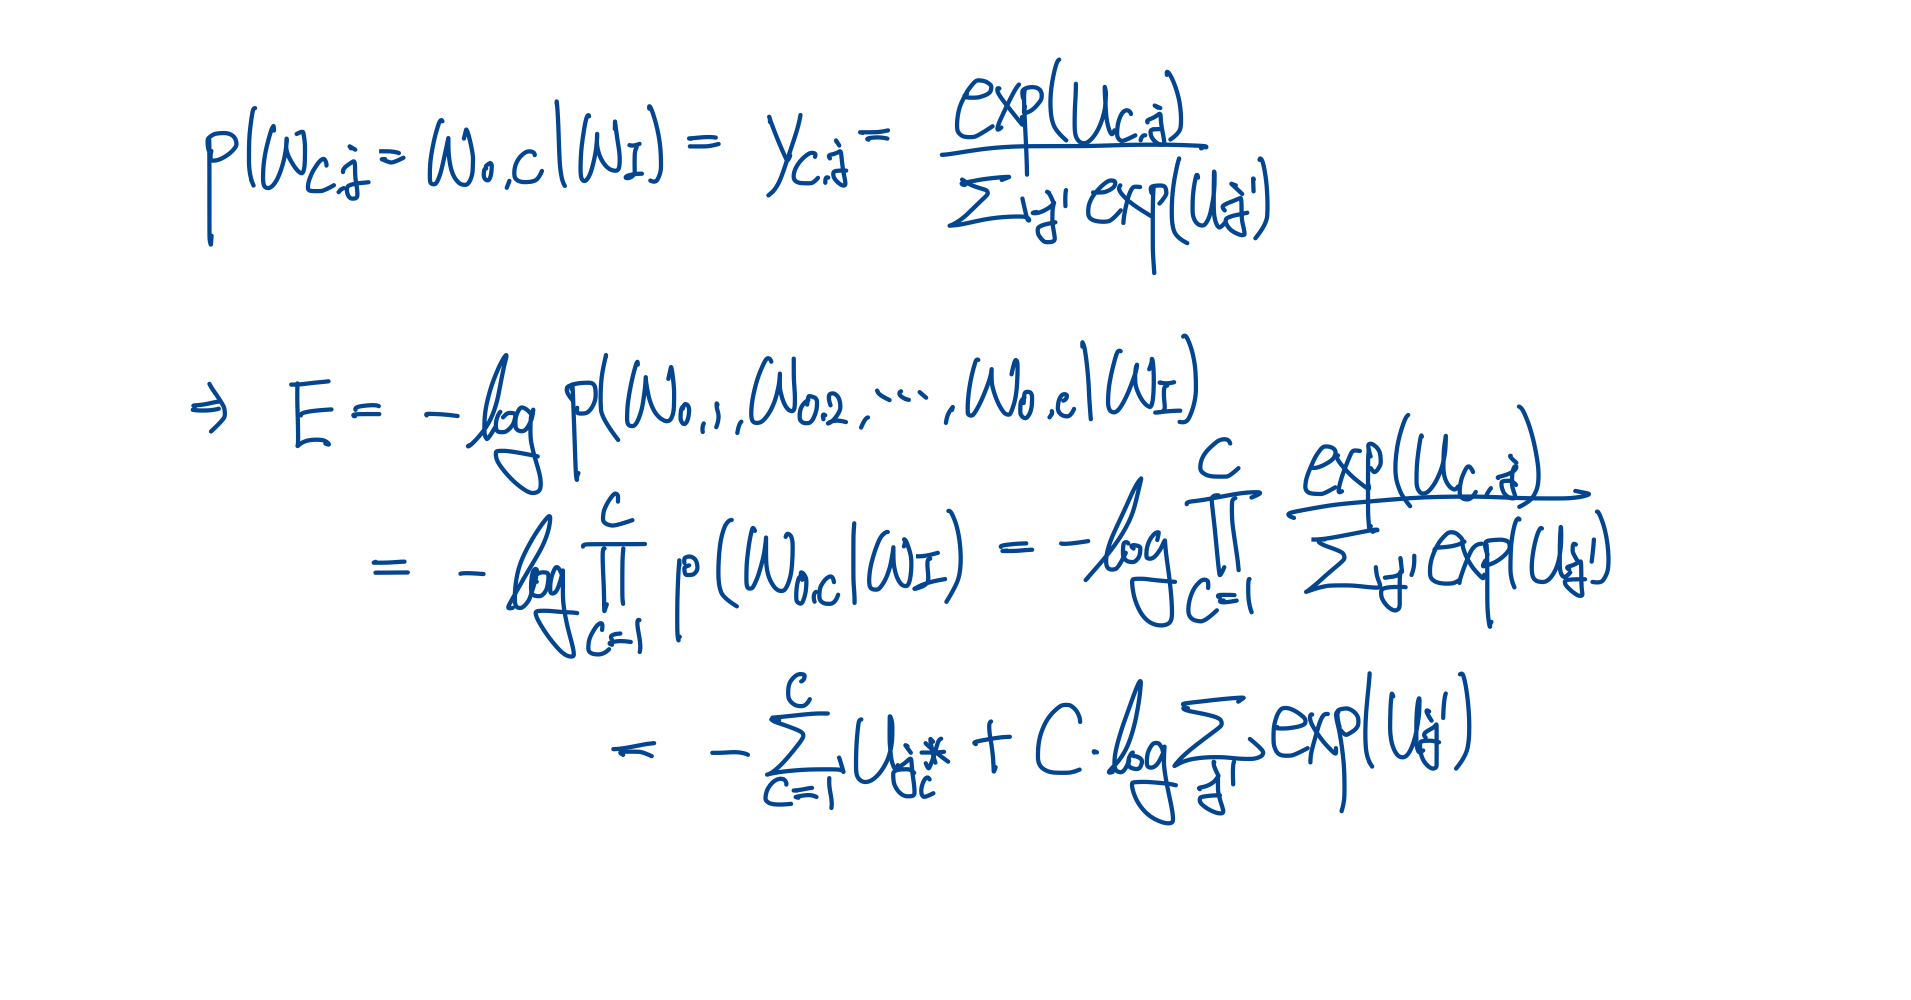 p(w_{c,j} = w_{o,c} | w_I) = y_{c,j} = \frac{exp(u_{c,j})}{\sum_{j'} exp(u_{j'})}
⇒ E = -log p(w_{o,1}, w_{o,2}, ⋯, w_{o,c} | w_I)
= -log \prod_{c=1}^{C} p(w_{o,c} | w_I) = -log \prod_{c=1}^{C} \frac{exp(u_{c,j})}{\sum_{j'} exp(u_{j'})}
= -\sum_{c=1}^{C} u_{j_c^*} + C · log \sum_{j'} exp(u_{j'})